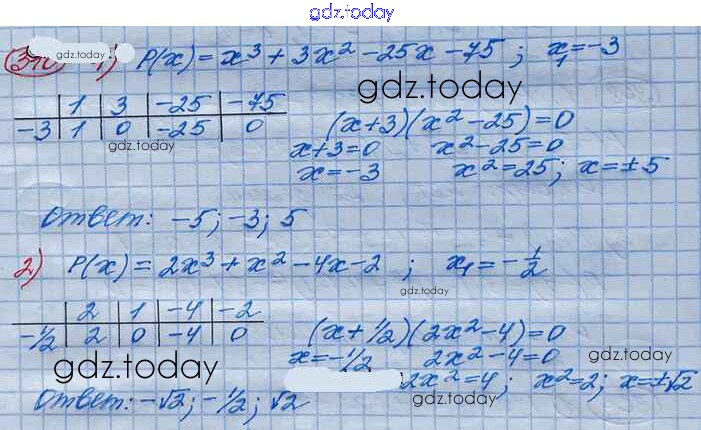 gdz.today
1) P(x) = x³ + 3x² - 25x - 75 ; x₁ = -3
gdz.today
gdz.today
1 3 -25 -75
-3 1 0 -25 0
gdz.today
(x+3)(x² - 25) = 0
x+3=0 x² - 25 = 0
x = -3 x² = 25 ; x = ± 5
Ответ: -5 ; -3 ; 5
2) P(x) = 2x³ + x² - 4x - 2 ; x₁ = - 1/2
gdz.today
2 1 -4 -2
-1/2 2 0 -4 0
(x + 1/2)(2x² - 4) = 0
x = -1/2 2x² - 4 = 0
gdz.today
gdz.today
2x² = 4 ; x² = 2 ; x = ±√2
gdz.today
Ответ: -√2 ; -1/2 ; √2